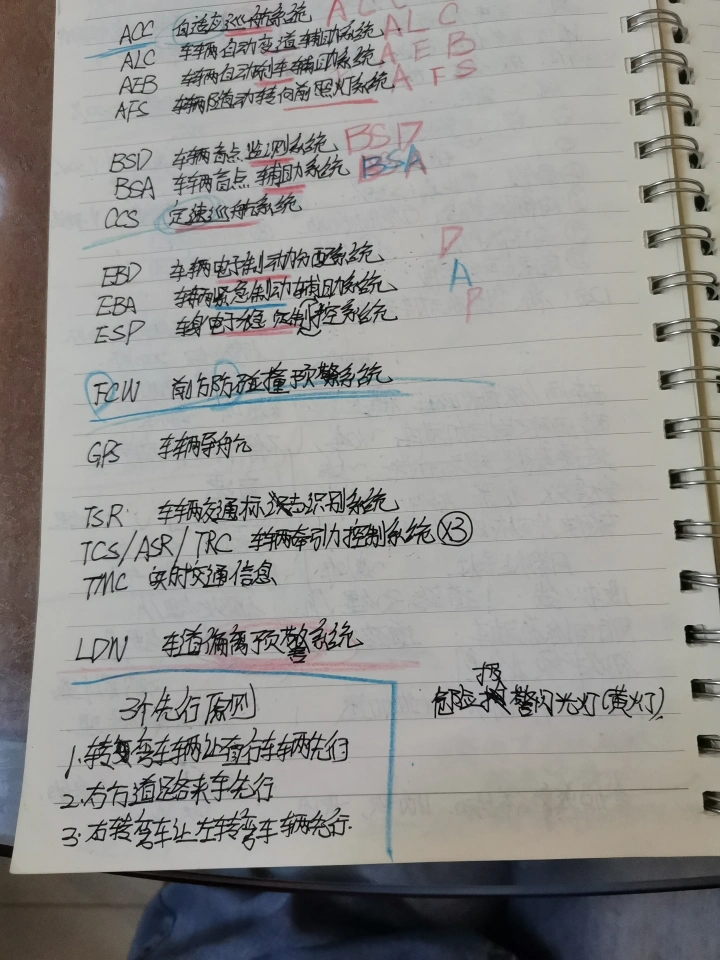 ACC 自适应巡航系统 ACC
ALC 车辆自动变道辅助系统 ALC
AEB 车辆自动刹车辅助系统 AEB
AFS 车辆随动转向前照灯系统 AFS
BSD 车辆盲点监测系统 BSD
BSA 车辆盲点辅助系统 BSA
CCS 定速巡航系统
EBD 车辆电子制动力分配系统 D
EBA 车辆紧急制动辅助系统 A
ESP 车身电子稳定控制系统 P
FCW 前方防碰撞预警系统
GPS 车辆导航
TSR 车辆交通标志识别系统
TCS/ASR/TRC 车辆牵引力控制系统 ×3
TMC 实时交通信息
LDW 车道偏离预警系统
3个先行原则
危险报警闪光灯(黄灯)
1.转弯车辆让直行车辆先行
2.右方道路来车先行
3.右转弯车让左转弯车辆先行.